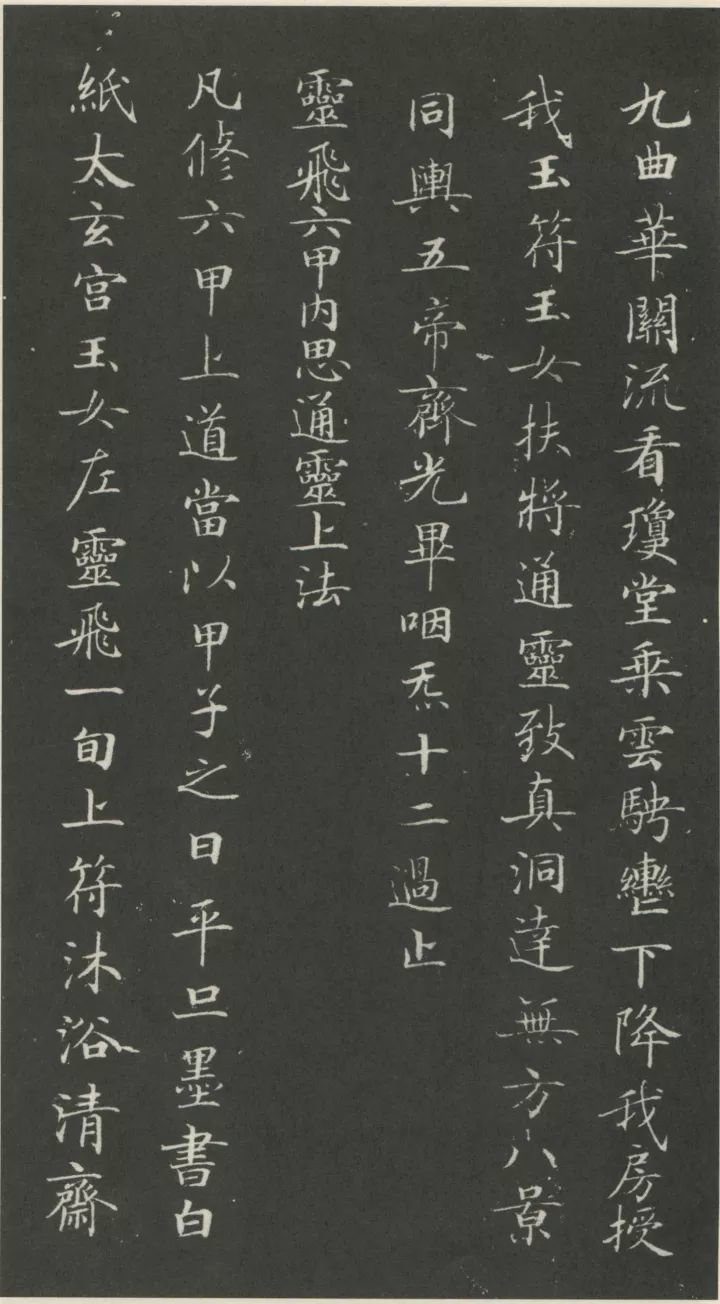 九曲華關流看瓊堂乘雲駃轡下降我房授
我玉符玉女扶將通靈致真洞達無方八景
同輿五帝齊光畢咽炁十二過止
靈飛六甲內思通靈上法
凡脩六甲上道當以甲子之日平旦墨書白
紙太玄宮玉女左靈飛一旬上符沐浴清齋